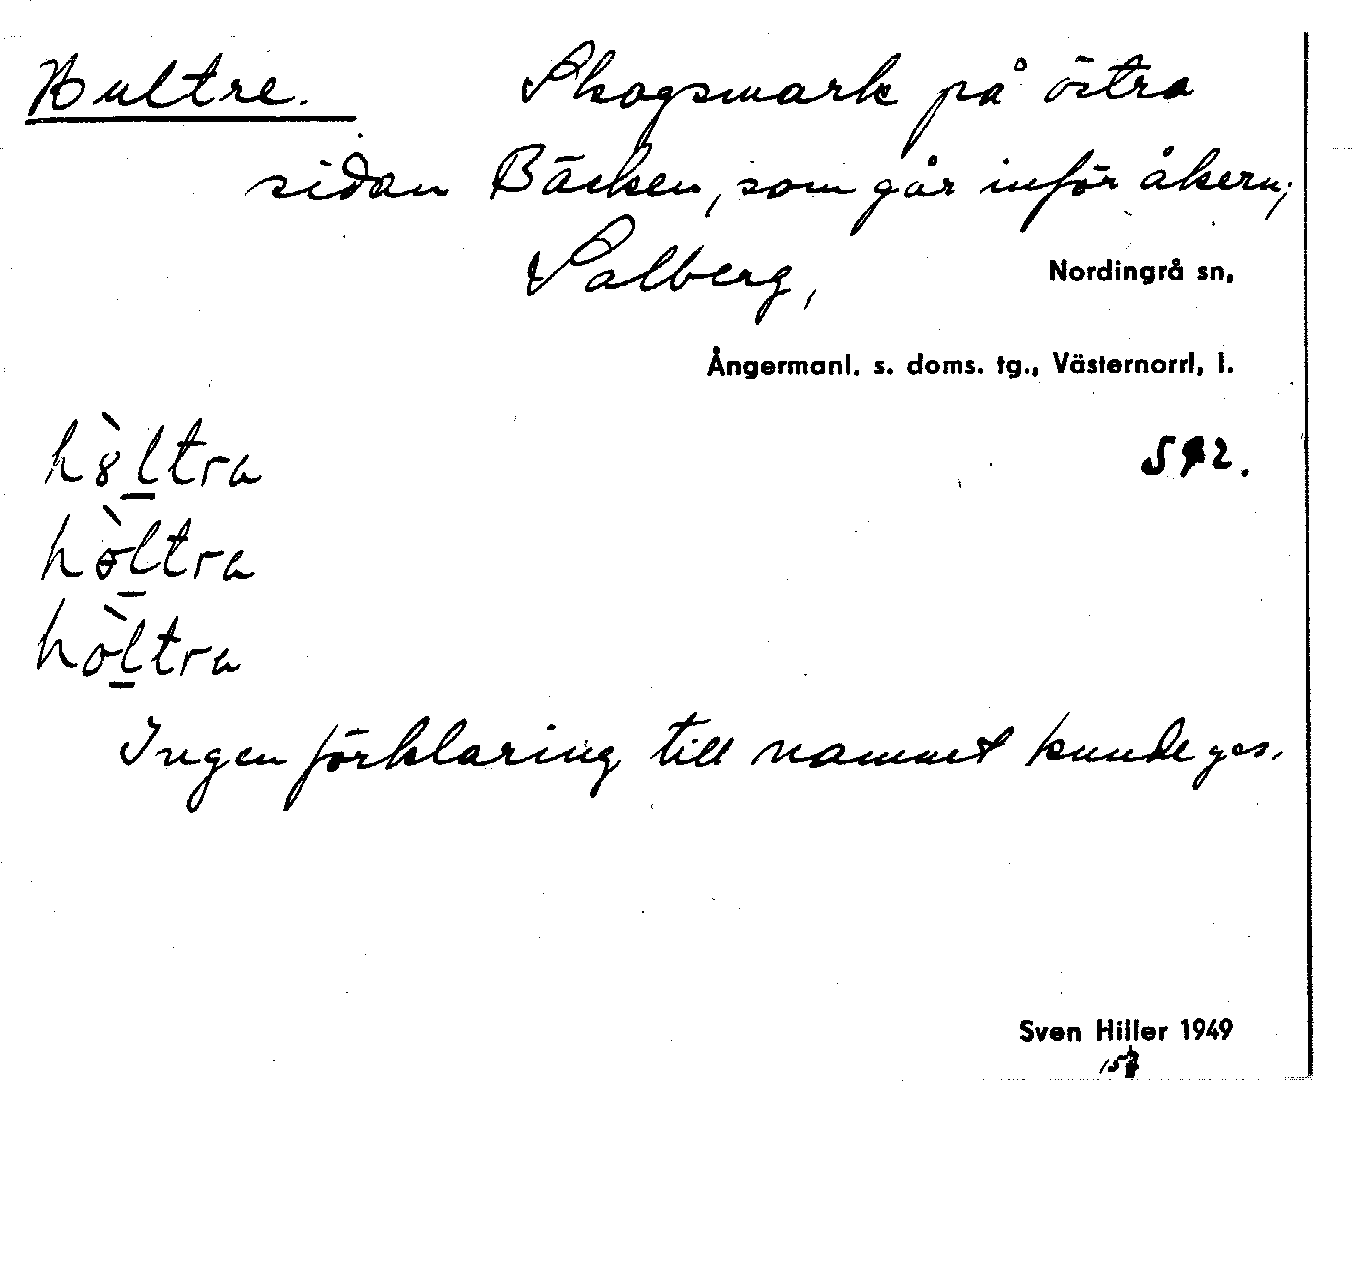 Hultre. Skogsmark på östra
sidan Bäcken, som går inför åkern;
Salberg, Nordingrå sn,
Ångermanl. s. doms. tg., Västernorrl. l.
hòltra
hòltra
hòltra
Ingen förklaring till namnet kunde ges.
Sven Hiller 1949